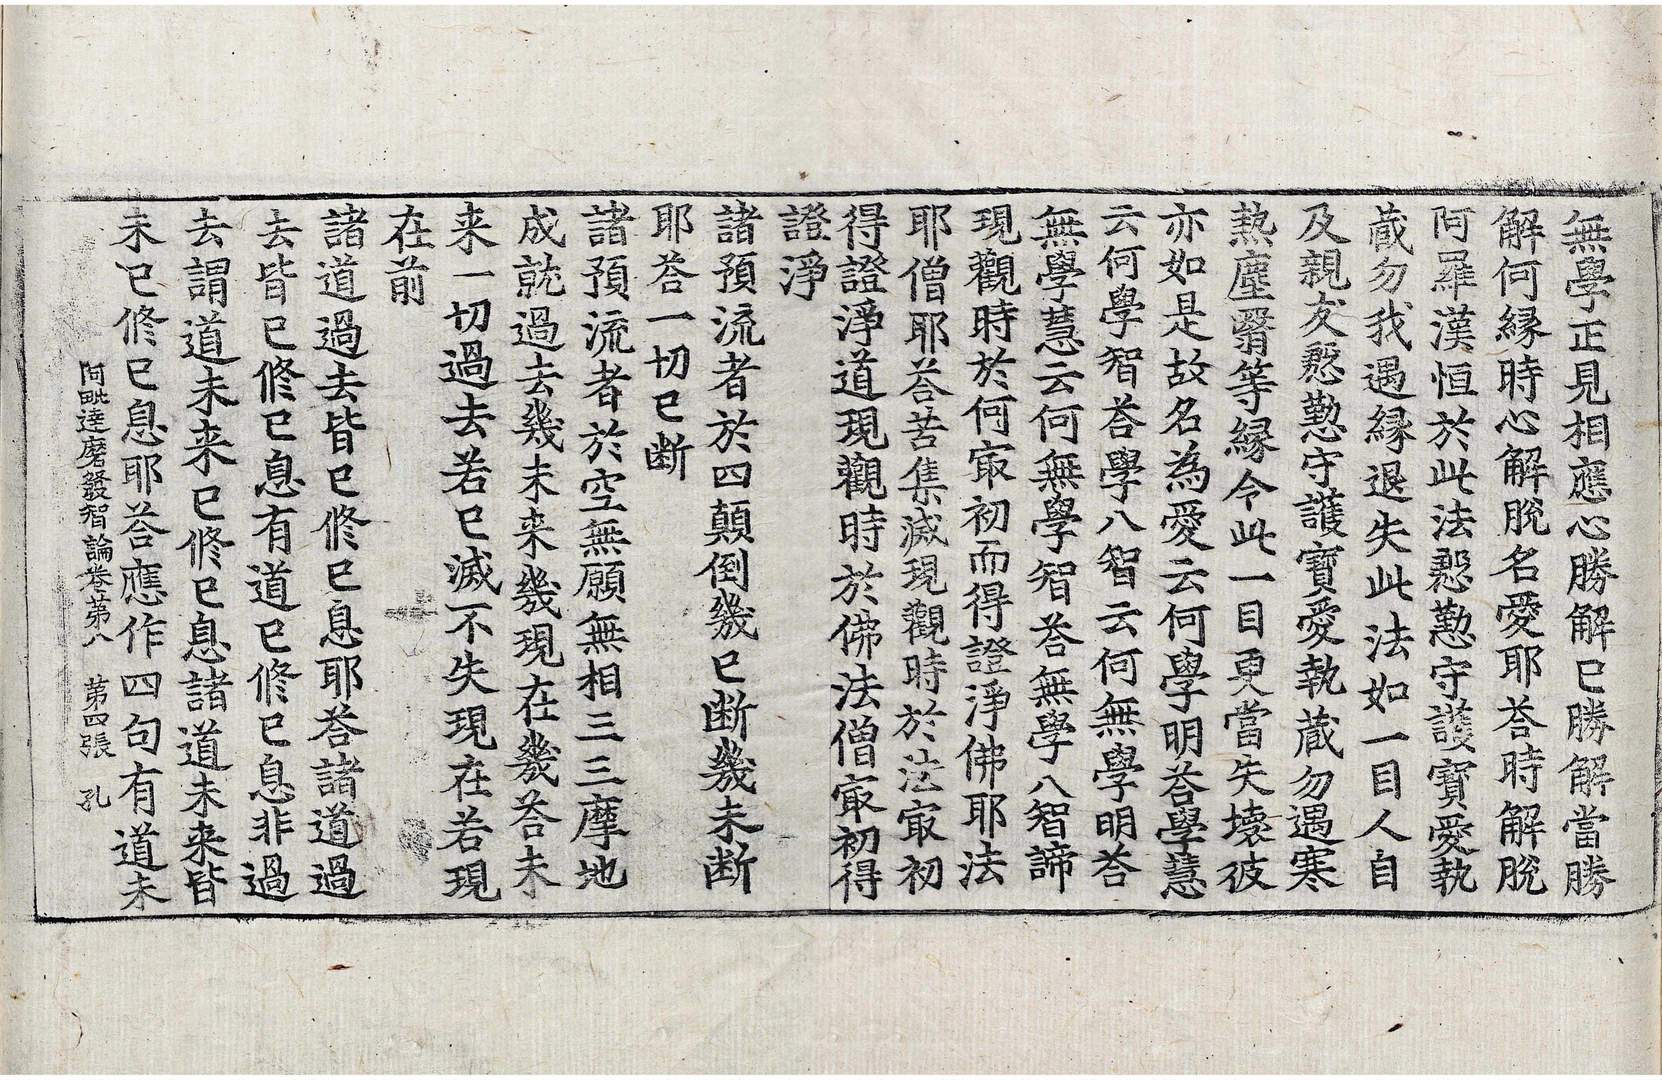 無學正見相應心勝解巳勝解當勝
解何縁時心解脫名愛耶荅時解脫
阿羅漢恒於此法慇懃守護寶愛執
蔵勿我遇縁退失此法如一目人自
及親友慇懃守護寶愛執蔵勿遇寒
熱塵翳等縁令此一目更當失壞彼
亦如是故名為愛云何學明荅學慧
云何學智荅學八智云何無學明荅
無學慧云何無學智荅無學八智諦
現觀時於何㝡初而得證淨佛耶法
耶僧耶荅苦集滅現觀時於法㝡初
得證淨道現觀時於佛法僧㝡初得
證淨
諸預流者於四顛倒幾巳断幾未断
耶荅一切巳断
諸預流者於空無願無相三三摩地
成就過去幾未来幾現在幾荅未
来一切過去若巳滅不失現在若現
在前
諸道過去皆巳修巳息耶荅諸道過
去皆巳修巳息有道巳修巳息非過
去謂道未来巳修巳息諸道未来皆
未巳修巳息耶荅應作四句有道未
阿毗達磨發智論卷第八　第四張　孔